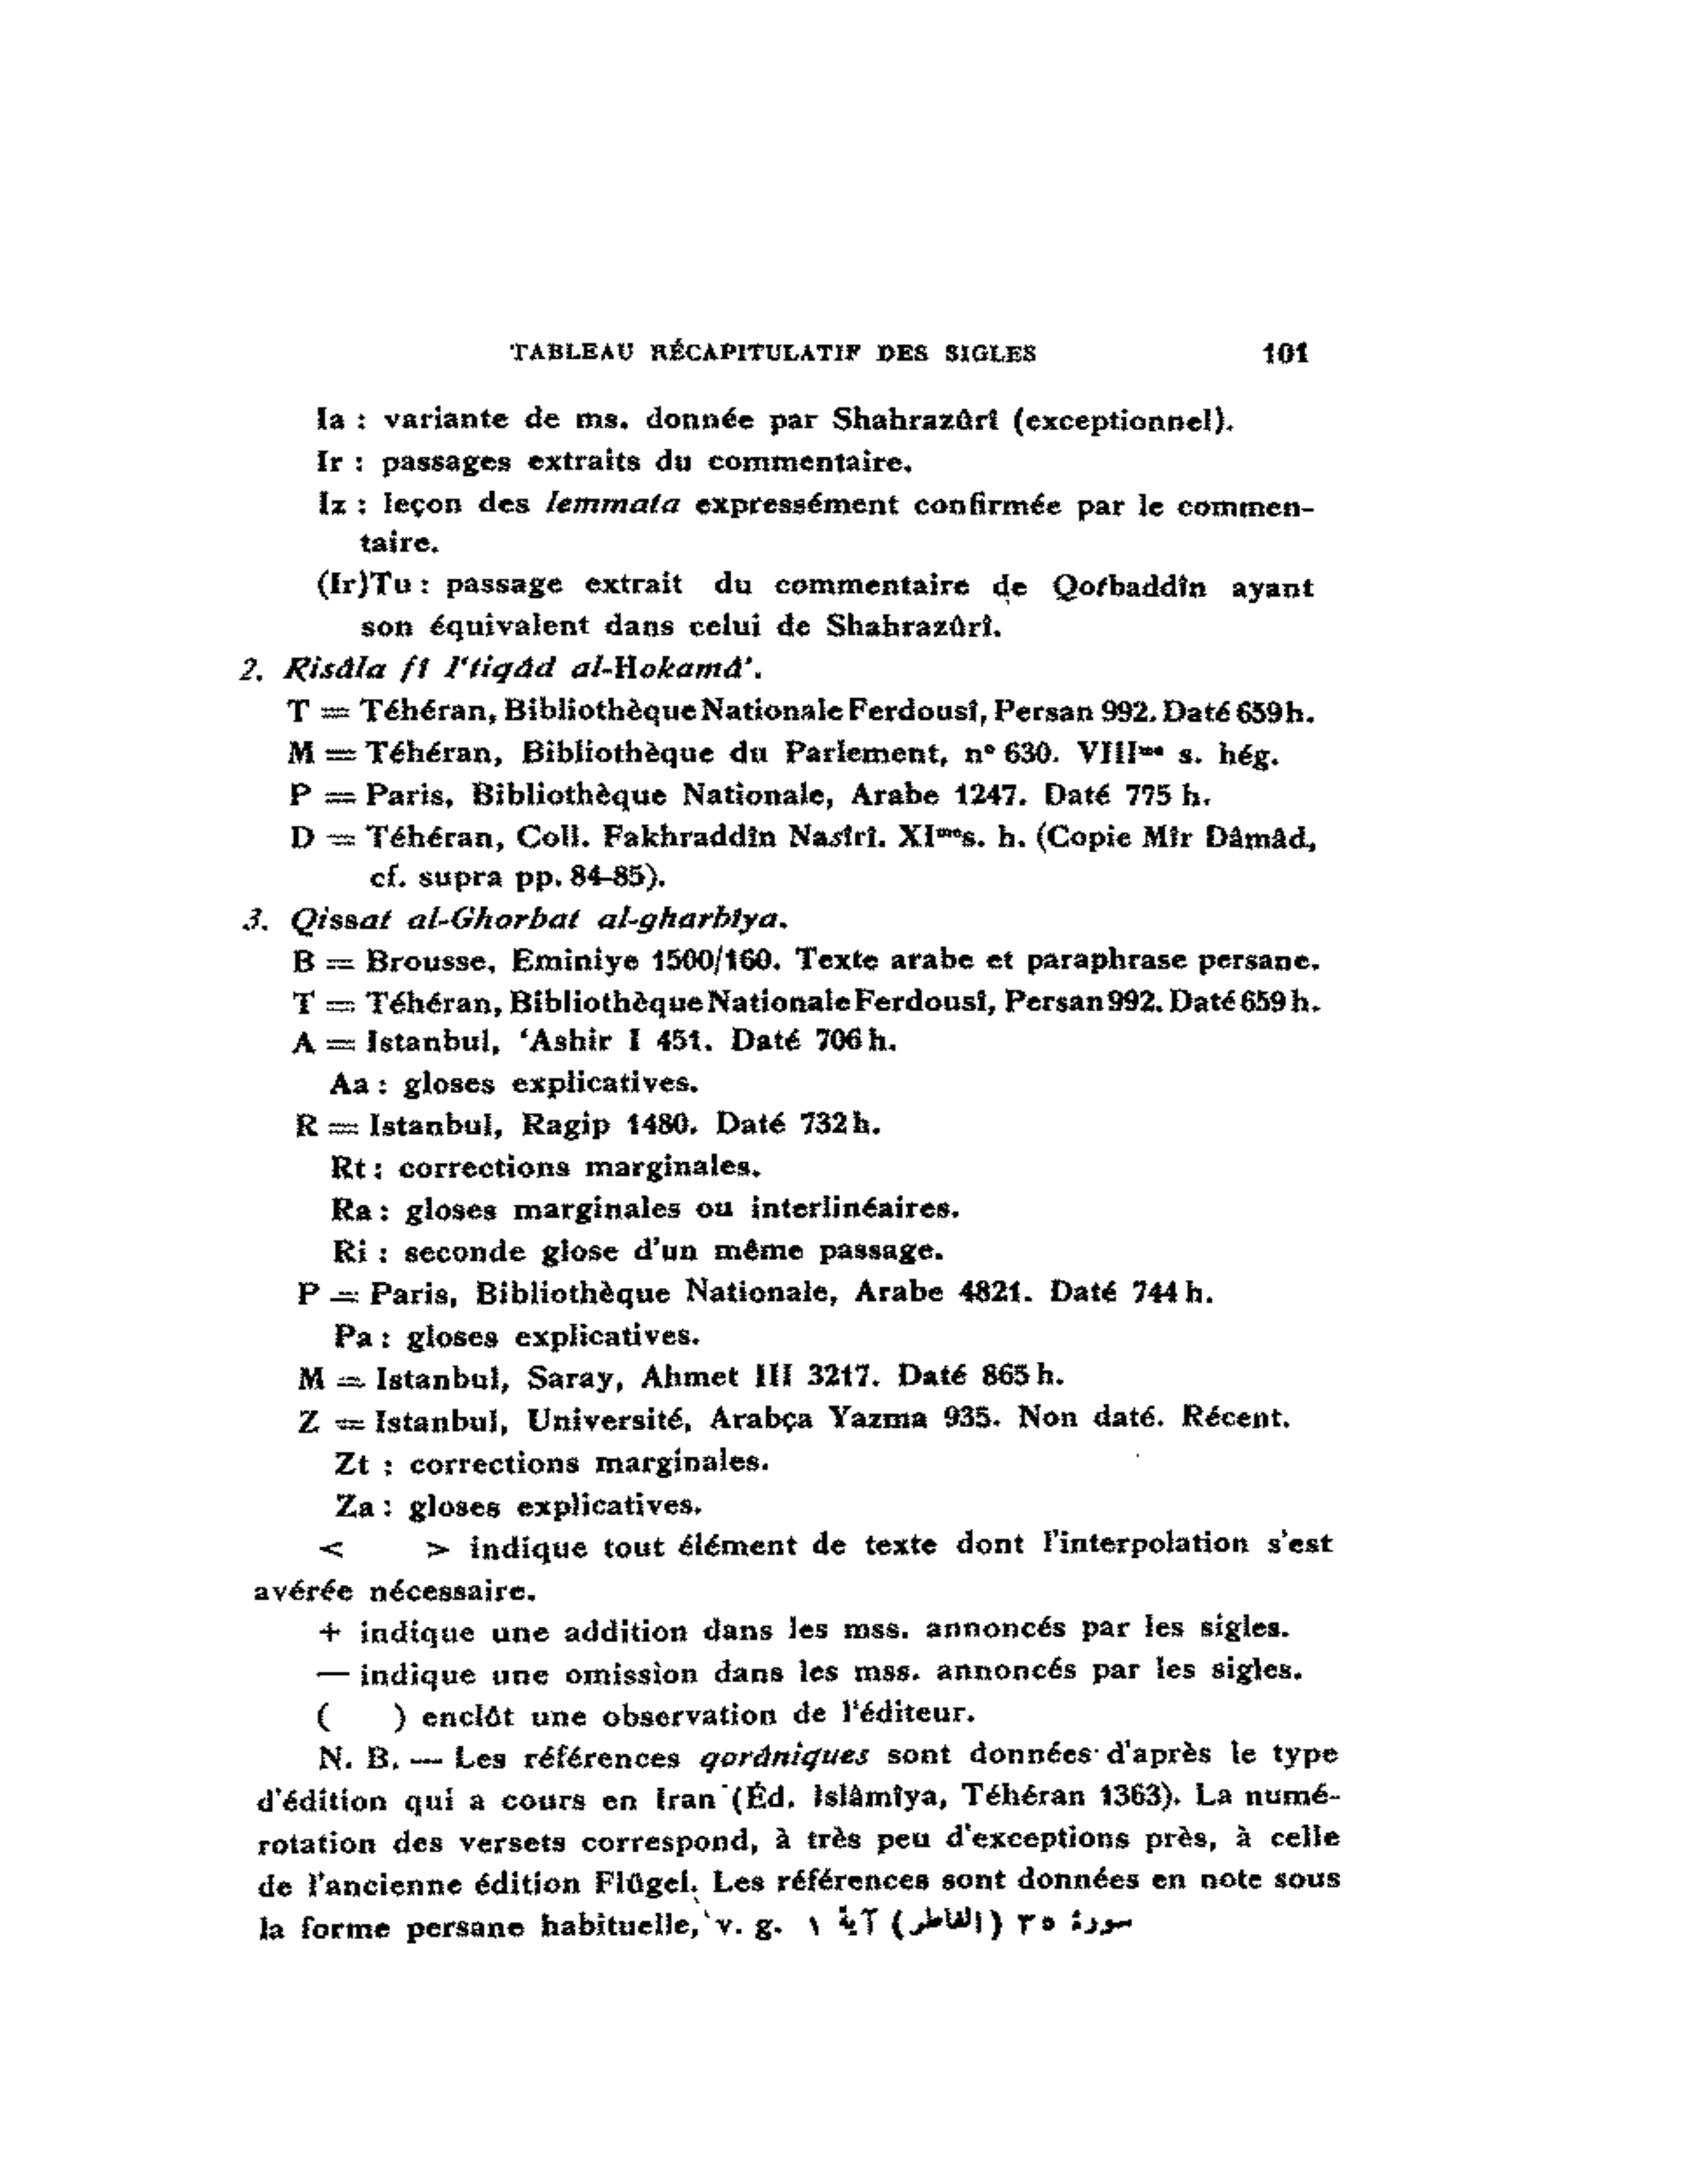 TABLEAU RÉCAPITULATIF DES SIGLES 101
Ia : variante de ms. donnée par Shahrazûrî (exceptionnel).
Ir : passages extraits du commentaire.
Iz : leçon des lemmata expressément confirmée par le commen-
taire.
(Ir)Tu : passage extrait du commentaire de Qotbaddîn ayant
son équivalent dans celui de Shahrazûrî.
2. Risâla fî I'tiqâd al-Hokamâ'.
T = Téhéran, Bibliothèque Nationale Ferdousî, Persan 992. Daté 659 h.
M = Téhéran, Bibliothèque du Parlement, n° 630. VIIIme s. hég.
P = Paris, Bibliothèque Nationale, Arabe 1247. Daté 775 h.
D = Téhéran, Coll. Fakhraddîn Nasîrî. XIme s. h. (Copie Mîr Dâmâd,
cf. supra pp. 84-85).
3. Qissat al-Ghorbat al-gharbîya.
B = Brousse, Eminiye 1500/160. Texte arabe et paraphrase persane.
T = Téhéran, Bibliothèque Nationale Ferdousî, Persan 992. Daté 659 h.
A = Istanbul, ‘Ashir I 451. Daté 706 h.
Aa : gloses explicatives.
R = Istanbul, Ragip 1480. Daté 732 h.
Rt : corrections marginales.
Ra : gloses marginales ou interlinéaires.
Ri : seconde glose d'un même passage.
P = Paris, Bibliothèque Nationale, Arabe 4821. Daté 744 h.
Pa : gloses explicatives.
M = Istanbul, Saray, Ahmet III 3217. Daté 865 h.
Z = Istanbul, Université, Arabça Yazma 935. Non daté. Récent.
Zt : corrections marginales.
Za : gloses explicatives.
< > indique tout élément de texte dont l'interpolation s'est
avérée nécessaire.
+ indique une addition dans les mss. annoncés par les sigles.
— indique une omission dans les mss. annoncés par les sigles.
( ) enclôt une observation de l'éditeur.
N. B. — Les références qorâniques sont données d'après le type
d'édition qui a cours en Iran (Éd. Islâmîya, Téhéran 1363). La numé-
rotation des versets correspond, à très peu d'exceptions près, à celle
de l'ancienne édition Flügel. Les références sont données en note sous
la forme persane habituelle, v. g. سورۀ ۳۵ (الفاطر) آیۀ ۱